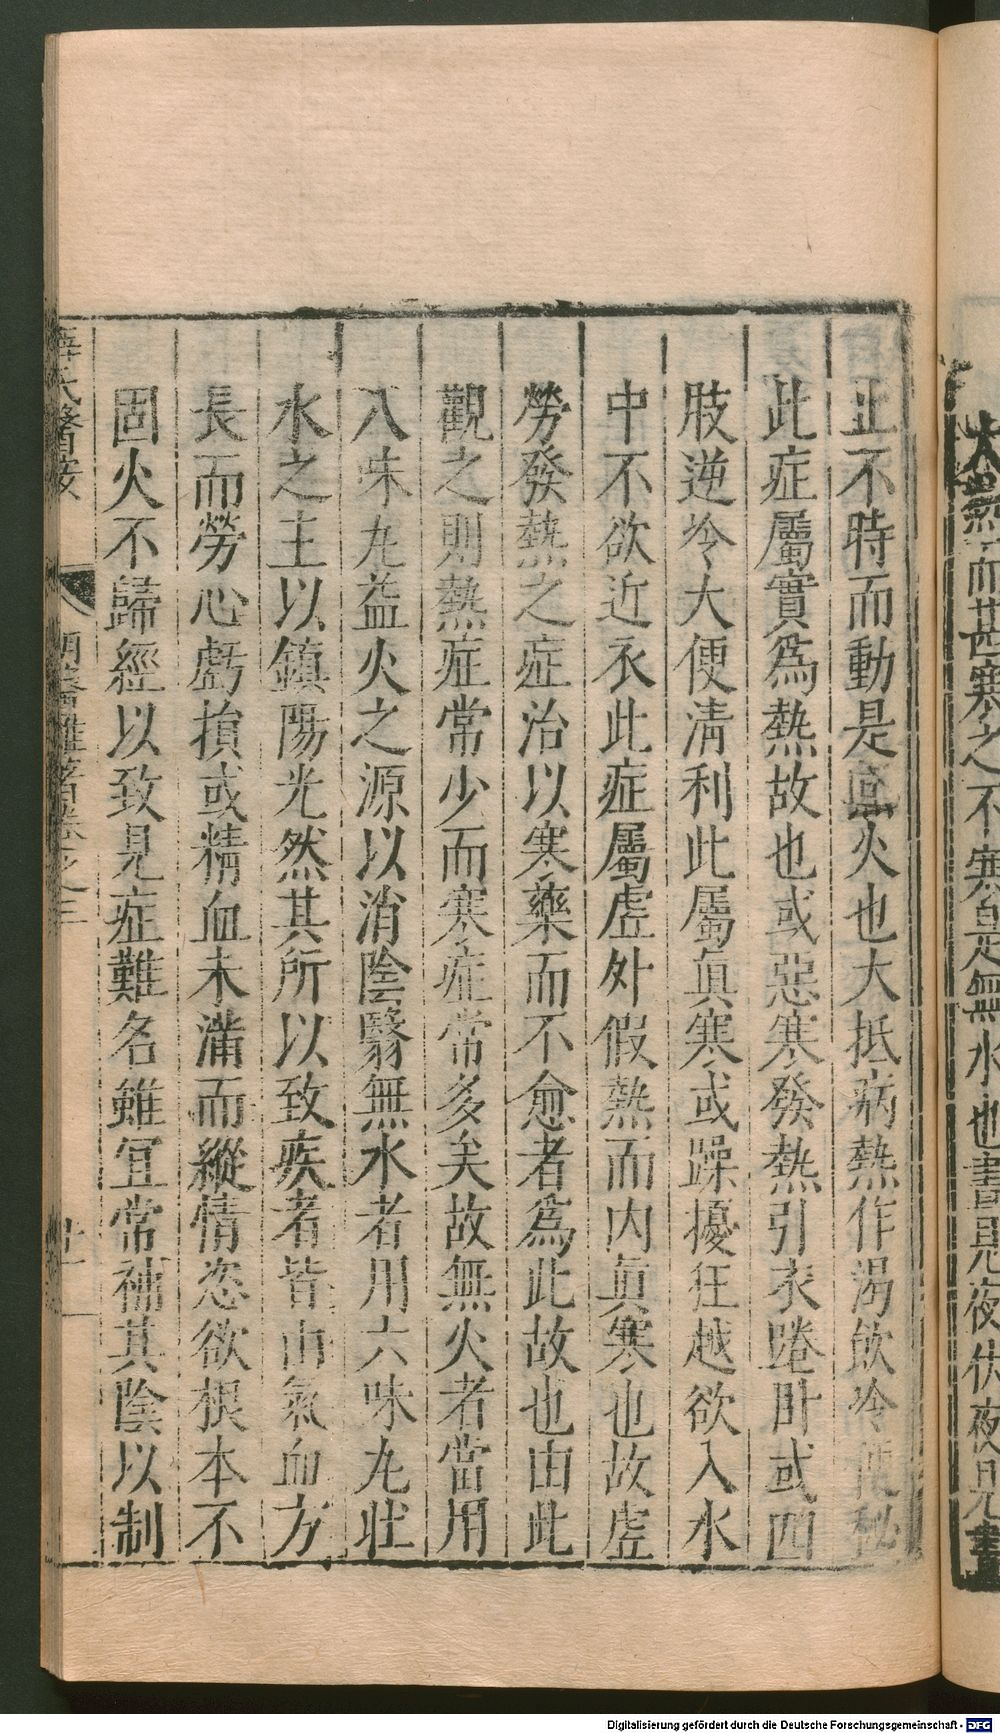 大熱而甚寒之不寒是無水也晝見夜伏夜見晝
止不時而動是無火也大抵病熱作渴飲冷便秘
此症屬實為熱故也或惡寒發熱引衣踡卧或四
肢逆冷大便清利此屬真寒或躁擾狂越欲入水
中不欲近衣此症屬虛外假熱而内真寒也故虛
勞發熱之症治以寒藥而不愈者為此故也由此
觀之則熱症常少而寒症常多矣故無火者當用
八味丸益火之源以消陰翳無水者用六味丸壯
水之主以鎮陽光然其所以致疾者皆由氣血方
長而勞心虧損或精血未滿而縱情恣欲根本不
固火不歸經以致見症難名雖宜常補其陰以制
薛氏醫按 明醫雜著卷之三 廿一
Digitalisierung gefördert durch die Deutsche Forschungsgemeinschaft - DFG